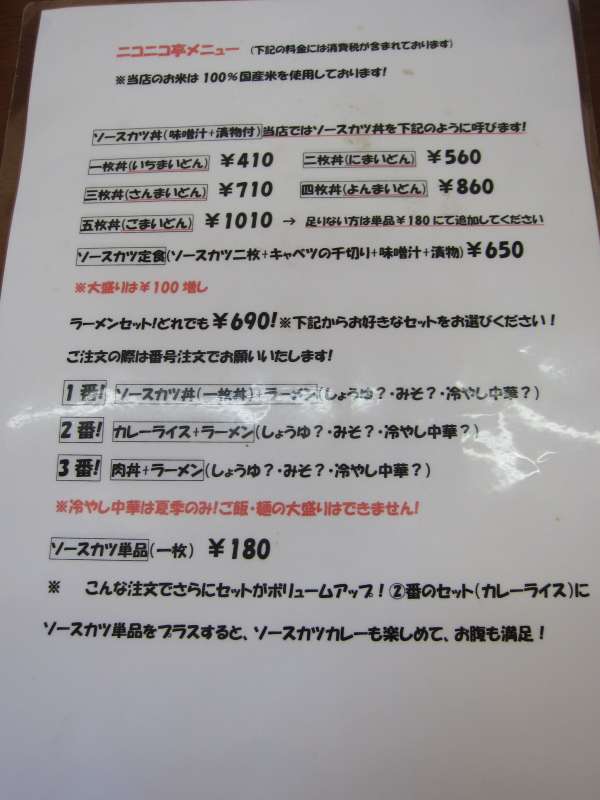 ニコニコ亭メニュー （下記の料金には消費税が含まれております）
※当店のお米は100％国産米を使用しております！
ソースカツ丼（味噌汁＋漬物付）当店ではソースカツ丼を下記のように呼びます！
一枚丼（いちまいどん） ￥410 二枚丼（にまいどん） ￥560
三枚丼（さんまいどん） ￥710 四枚丼（よんまいどん） ￥860
五枚丼（ごまいどん） ￥1010 → 足りない方は単品￥180にて追加してください
ソースカツ定食（ソースカツ二枚＋キャベツの千切り＋味噌汁＋漬物）￥650
※大盛りは￥100増し
ラーメンセット！どれでも￥690！※下記からお好きなセットをお選びください！
ご注文の際は番号注文でお願いいたします！
1番！ ソースカツ丼（一枚丼）＋ラーメン（しょうゆ？・みそ？・冷やし中華？）
2番！ カレーライス＋ラーメン（しょうゆ？・みそ？・冷やし中華？）
3番！ 肉丼＋ラーメン（しょうゆ？・みそ？・冷やし中華？）
※冷やし中華は夏季のみ！ご飯・麺の大盛りはできません！
ソースカツ単品（一枚） ￥180
※ こんな注文でさらにセットがボリュームアップ！②番のセット（カレーライス）に
ソースカツ単品をプラスすると、ソースカツカレーも楽しめて、お腹も満足！